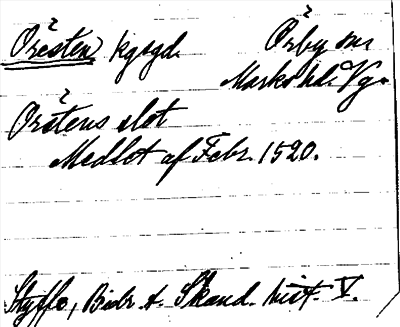 Öresten kgsgd.
Örby sn
Marks hd. Vg.
Örstens slot
Medlot af Febr. 1520.
Styffe, Bidr. t. Skand. hist. V.